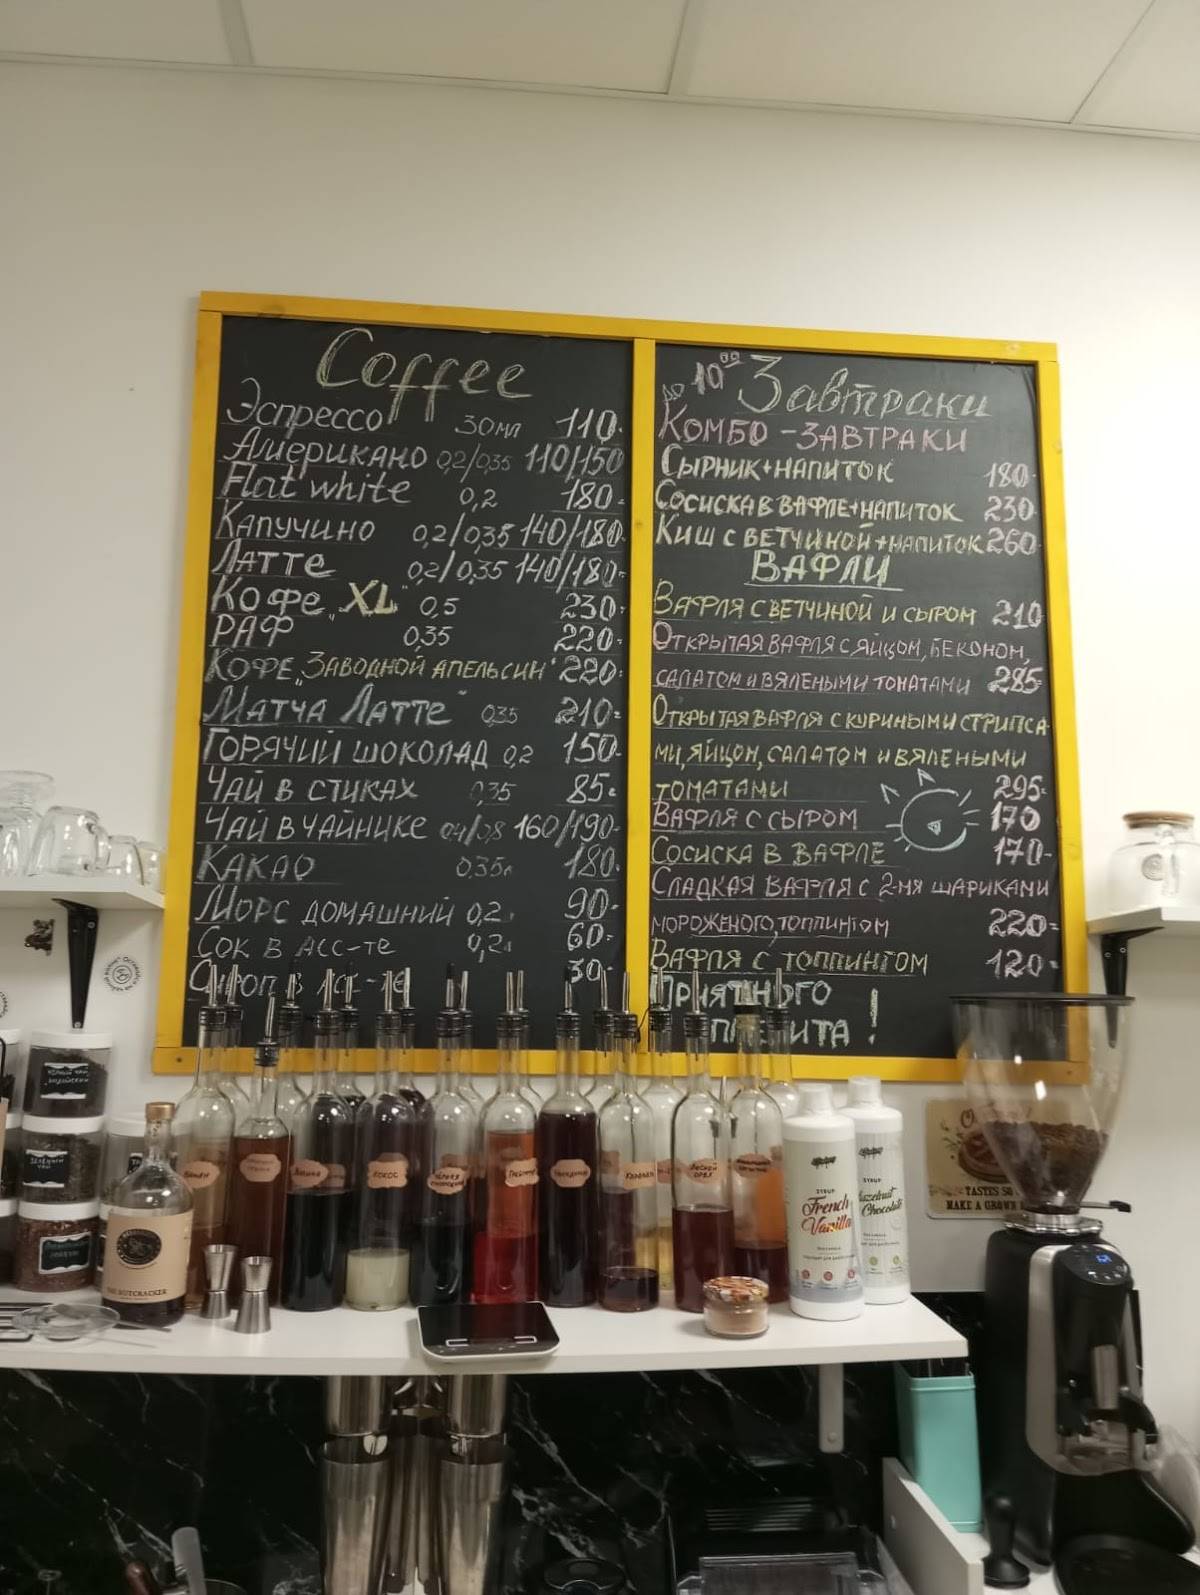 Coffee
Эспрессо 30мл 110-
Американо 0,2/0,35 110/150
Flat white 0,2 180-
Капучино 0,2/0,35 140/180-
Латте 0,2/0,35 140/180-
Кофе „XL“ 0,5 230-
РАФ 0,35 220-
Кофе „Заводной апельсин“ 220-
Матча Латте 0,35 210-
Горячий шоколад 0,2 150-
Чай в стиках 0,35 85-
Чай в чайнике 0,4/0,8 160/190-
Какао 0,35л 180-
Морс домашний 0,2 90-
Сок в асс-те 0,2л 60-
Сироп в асс-те 30-
до 10⁰⁰ Завтраки
Комбо - завтраки
Сырник+напиток 180-
Сосиска в вафле+напиток 230
Киш с ветчиной+напиток 260
Вафли
Вафля с ветчиной и сыром 210
Открытая вафля с яйцом, беконом,
салатом и вялеными томатами 285-
Открытая вафля с куриными стрипса-
ми, яйцом, салатом и вялеными
томатами 295-
Вафля с сыром 170
Сосиска в вафле 170-
Сладкая вафля с 2-мя шариками
мороженого, топпингом 220-
Вафля с топпингом 120-
Приятного
аппетита!
зелёный
чай
кокос
лесной
орех
SYRUP
French
Vanilla
SYRUP
Hazelnut
Chocolate
TASTES SO
MAKE A GROWN